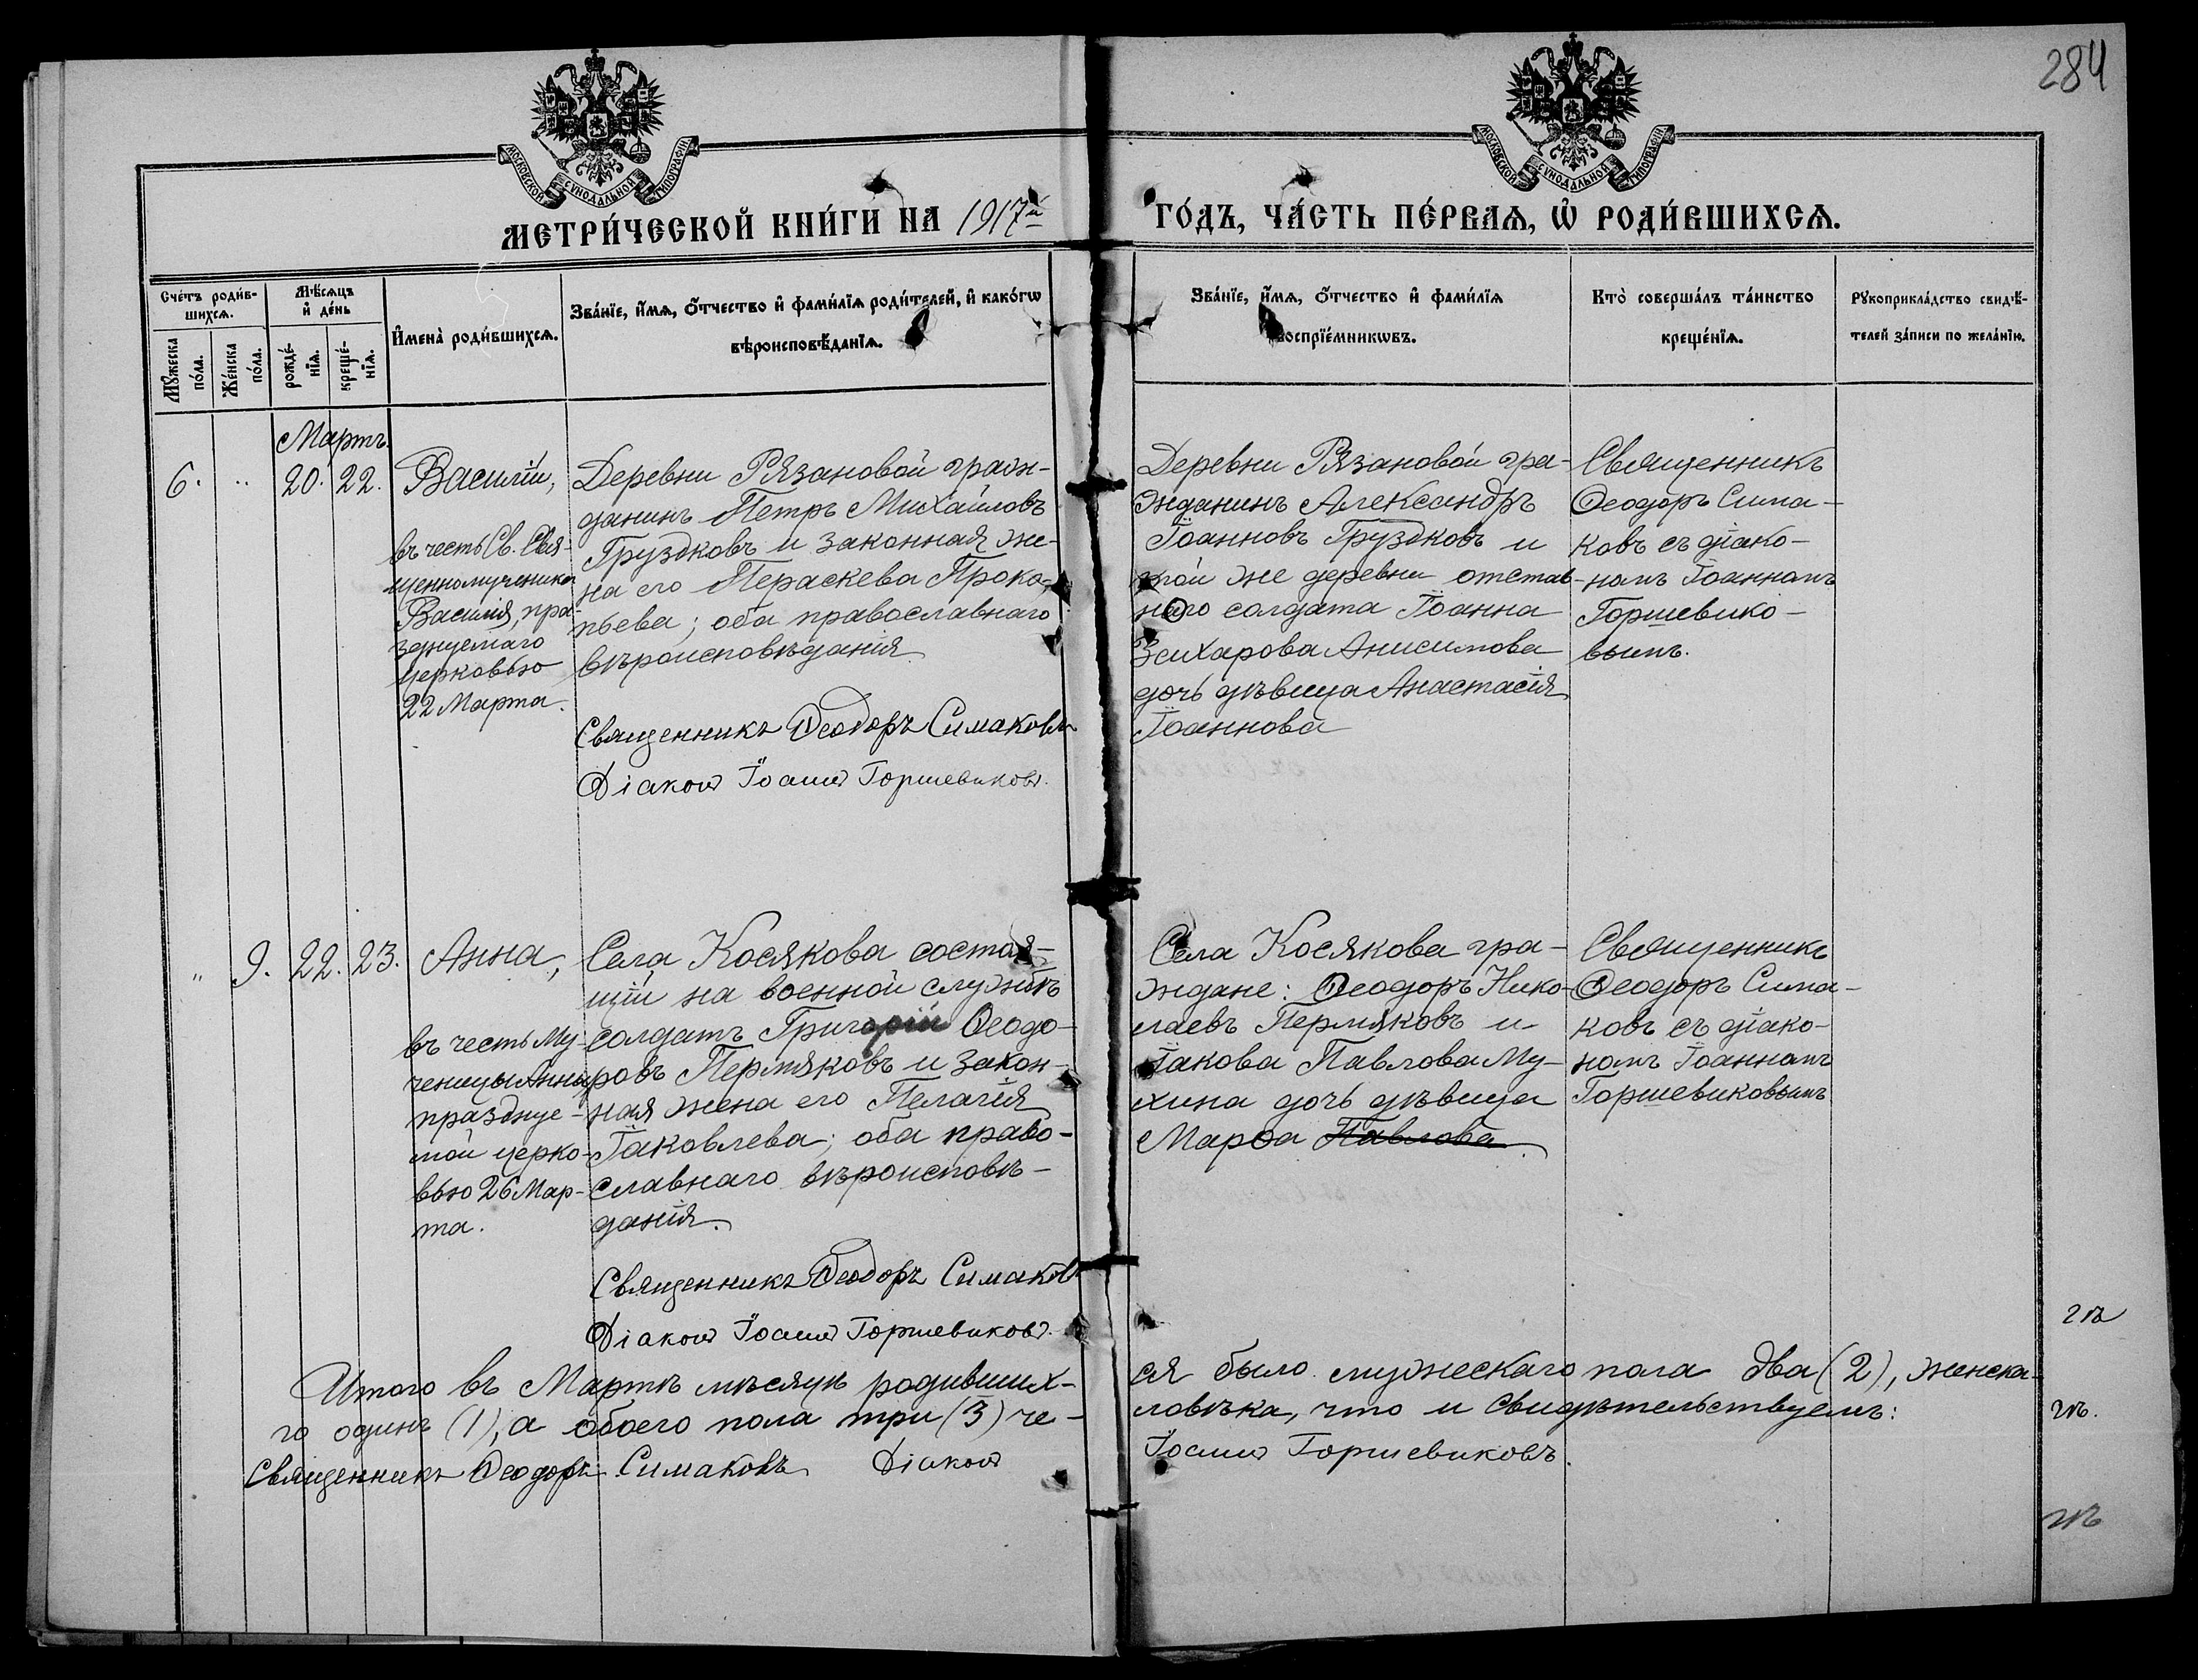 284
МОСКОВСКОЙ СѴНОДАЛЬНОЙ ТИПОГРАФІИ
МОСКОВСКОЙ СѴНОДАЛЬНОЙ ТИПОГРАФІИ
МЕТРИ́ЧЕСКОЙ КНИ́ГИ НА 1917й ГО́ДЪ, ЧА́СТЬ ПЕ́РВАѦ, Ѡ҆ РОДИ́ВШИХСѦ.
Сче́тъ роди́в-
шихсѧ.
Мꙋ́жеска
по́ла.
Же́нска
по́ла.
Мѣ́сѧцъ
и҆ де́нь
рожде́-
нїѧ.
креще́-
нїѧ.
И҆мена̀ роди́вшихсѧ.
Зва́нїе, и҆́мѧ, о҆́тчество и҆ фами́лїѧ роди́телей, и҆ како́гѡ
вѣроисповѣ́данїѧ.
Зва́нїе, и҆́мѧ, о҆́тчество и҆ фами́лїѧ
воспрїе́мникѡвъ.
Кто̀ соверша́лъ та́инство
креще́нїѧ.
Рꙋкоприкла́дство свидѣ́-
телей за́писи по жела́нїю.
Мартъ.
6. „ 20. 22.
Василій,
въ честь Св. Свя-
щенномученика
Василія, пра-
зднуемаго
церковью
22 Марта.
Деревни Рязановой граж-
данинъ Петръ Михайловъ
Груздковъ и законная же-
на его Параскева Проко-
пьева; оба православнаго
вѣроисповѣданія.
Священникъ Ѳеодоръ Симаковъ
Діаконъ Іоаннъ Горшевиковъ.
Деревни Рязановой гра-
жданинъ Александръ
Іоанновъ Груздковъ и
той же деревни отстав-
наго солдата Іоанна
Захарова Анисимова
дочь дѣвица Анастасія
Іоаннова
Священникъ
Ѳеодоръ Сима-
ковъ съ діако-
номъ Іоанномъ
Горшевико-
вымъ.
„ 9. 22. 23.
Анна,
въ честь Му-
ченицы Анны
празднуе-
мой церко-
вью 26 Мар-
та.
Села Косякова состоя-
щій на военной службѣ
солдатъ Григорій Ѳеодо-
ровъ Пермяковъ и закон-
ная жена его Пелагія
Іаковлева; оба право-
славнаго вѣроисповѣ-
данія.
Священникъ Ѳеодоръ Симаковъ
Діаконъ Іоаннъ Горшевиковъ.
Села Косякова гра-
ждане: Ѳеодоръ Нико-
лаевъ Пермяковъ и
Іакова Павлова Му-
хина дочь дѣвица
Марѳа Павлова.
Священникъ
Ѳеодоръ Сима-
ковъ съ діако-
номъ Іоанномъ
Горшевиковымъ
Итого въ Мартѣ мѣсяцѣ родивших-ся было мужескаго пола два (2), женска-
го одинъ (1), а обоего пола три (3) че-ловѣка, что и свидѣтельствуемъ:
Священникъ Ѳеодоръ Симаковъ Діаконъ Іоаннъ Горшевиковъ.